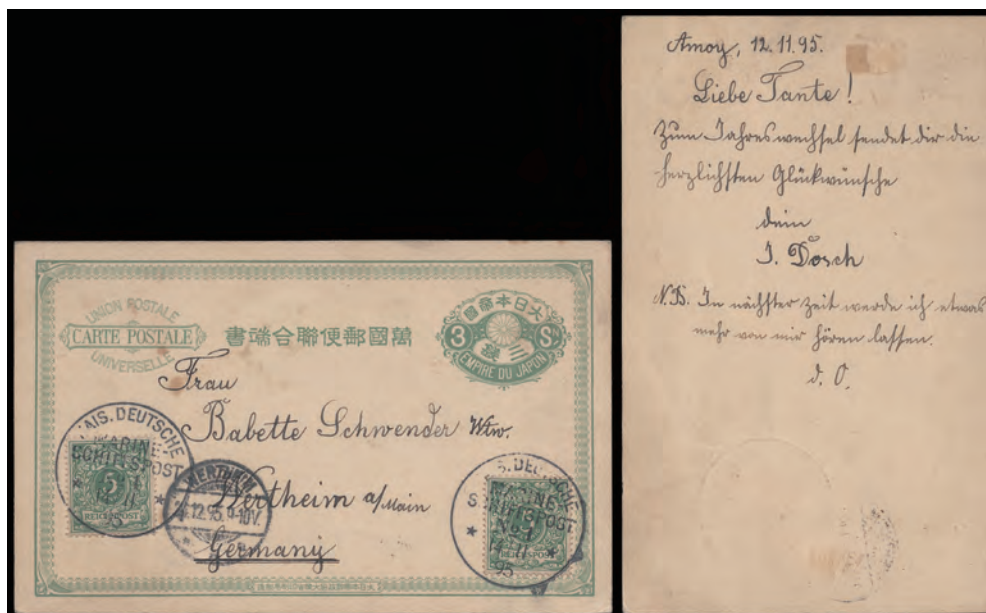 UNION POSTALE
CARTE POSTALE
UNIVERSELLE
書端合聯便郵國萬
國帝本日大
3 Sn
三錢
EMPIRE DU JAPON
Frau
Babette Schwender Wtw.
Wertheim a/Main
Germany
AIS. DEUTSCHE
MARINE-
SCHIFFSPOST
14 11
95
5
REICHSPOST
WERTHEIM
.12.95. 9-10V.
S. DEUTSCHE
MARINE-
SCHIFFSPOST
No 1
14 11
95
REICHSPOST
Amoy, 12.11.95.
Liebe Tante!
Zum Jahreswechsel sendet dir die
herzlichsten Glückwünsche
dein
J. Dosch
N.B. In nächster Zeit werde ich etwas
mehr von mir hören lassen.
d. O.